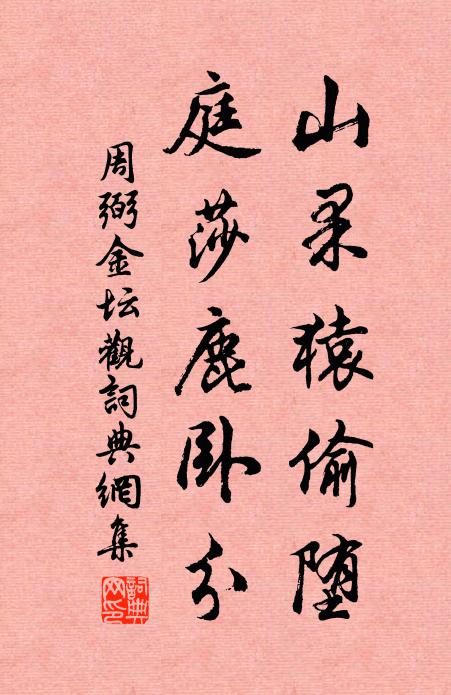 山果猿偷堕
庭莎鹿卧分
周弼金坛觀詞典網集
詞典网印